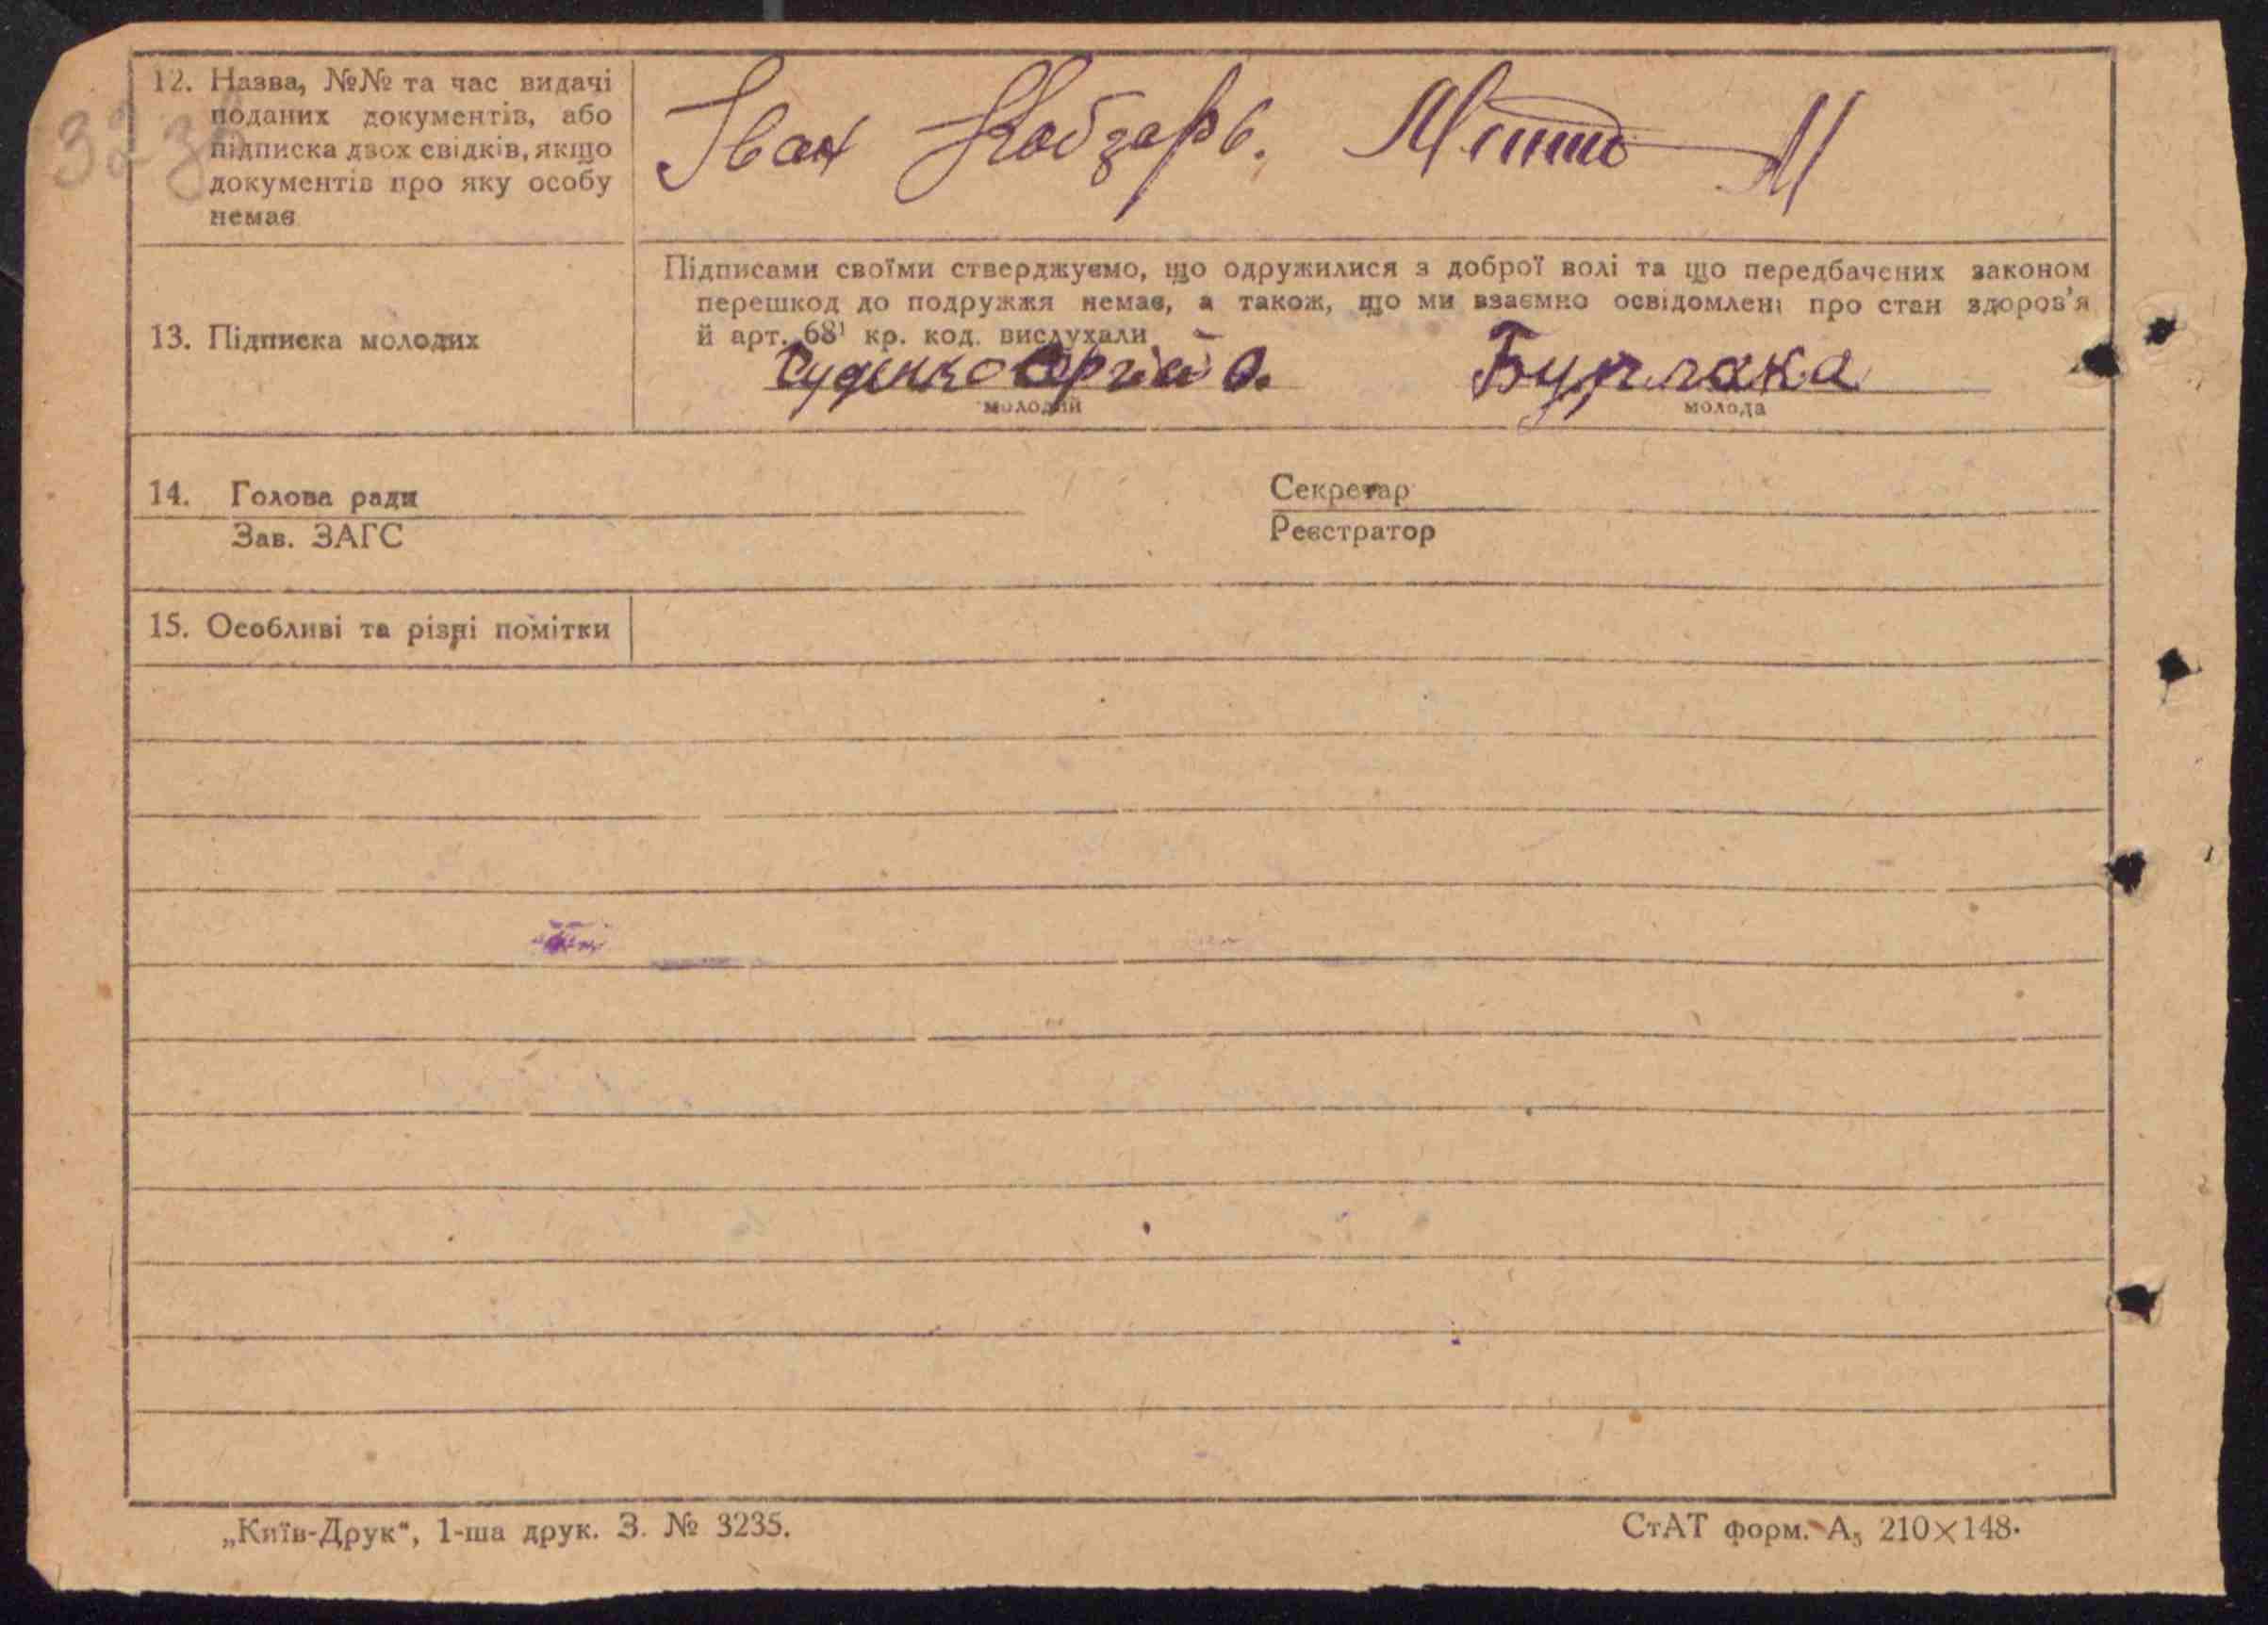 32 зв
12. Назва, №№ та час видачі
поданих документів, або
підписка двох свідків, якщо
документів про яку особу
немає
Іван Кобзарь. М
Підписами своїми стверджуємо, що одружилися з доброї волі та що передбачених законом
перешкод до подружжя немає, а також, що ми взаємно освідомлені про стан здоров'я
й арт. 68¹ кр. код. вислухали
13. Підписка молодих
Сергій О. Бурлака
молодий молода
14. Голова ради Секретар
Зав. ЗАГС Реєстратор
15. Особливі та різні помітки
„Київ-Друк“, 1-ша друк. З. № 3235. СтАТ форм. А₅ 210×148.